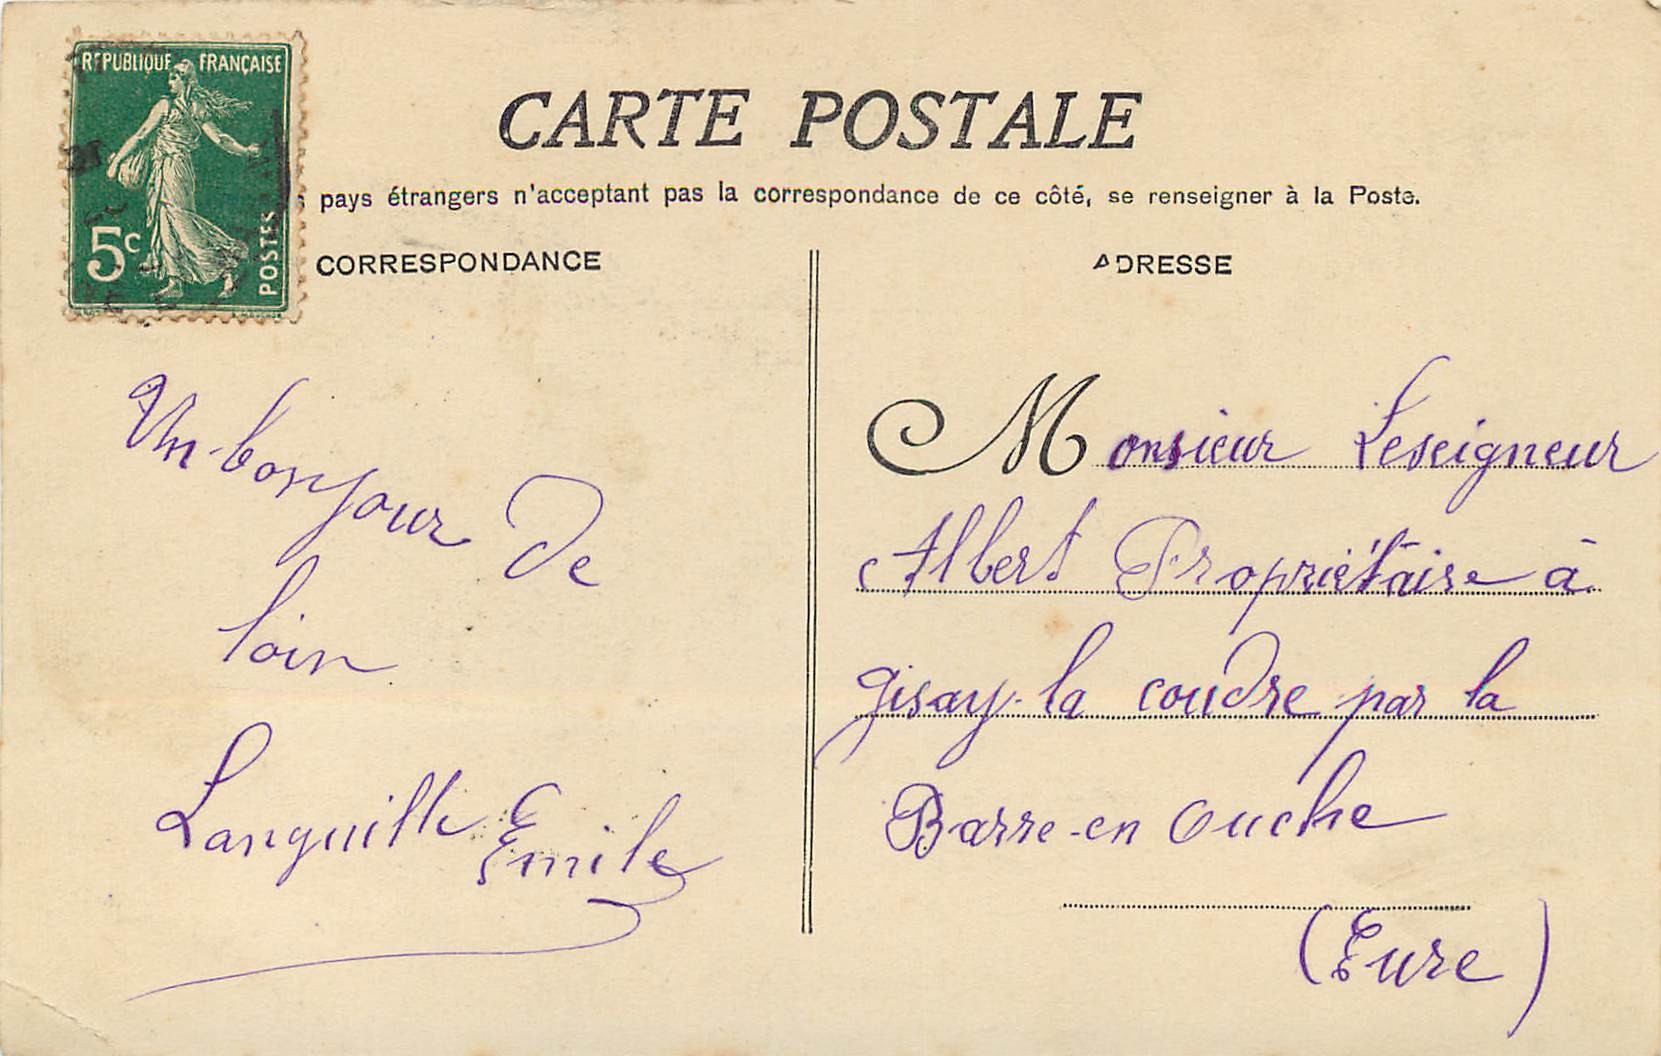 REPUBLIQUE FRANÇAISE
5c
POSTES
CARTE POSTALE
pays étrangers n'acceptant pas la correspondance de ce côté, se renseigner à la Poste.
CORRESPONDANCE
ADRESSE
Un bonjour de
loin
Languille Emile
Monsieur Leseigneur
Albert Propriétaire à
Gisay-la coudre par la
Barre-en Ouche
(Eure)